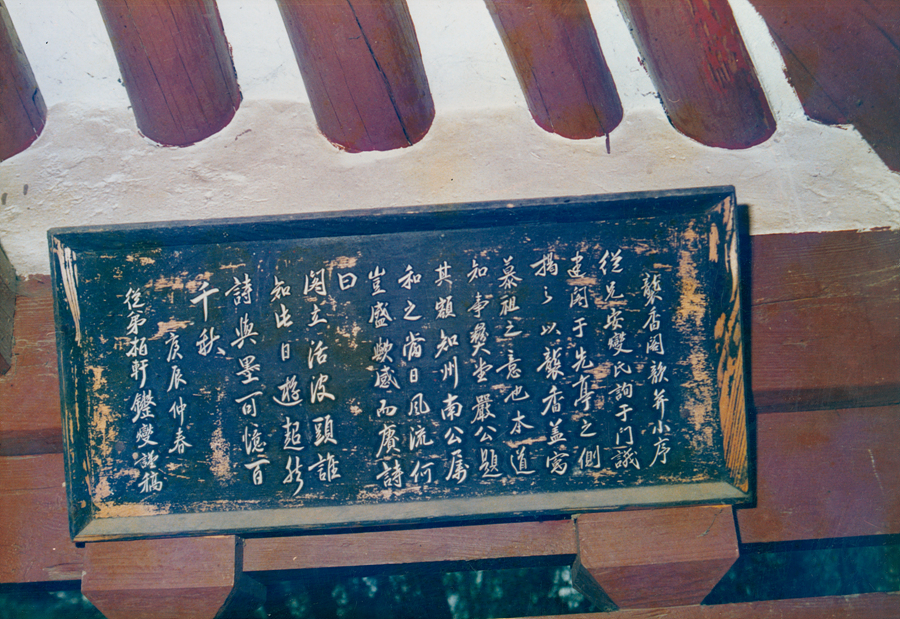 襲香閣韻并小序
從兄安燮氏詢于门議
建閣于先亭之側
揭之以襲香盖寓
慕祖之意也本道
知事㷜堂嚴公題
其額知州南公属
和之當日风流何
豈盛歟感而賡詩
曰
閣立活波頭誰
知此日遊起然
詩與墨可憶百
千秋
庚辰仲春
從弟栢軒鏗燮謹稿